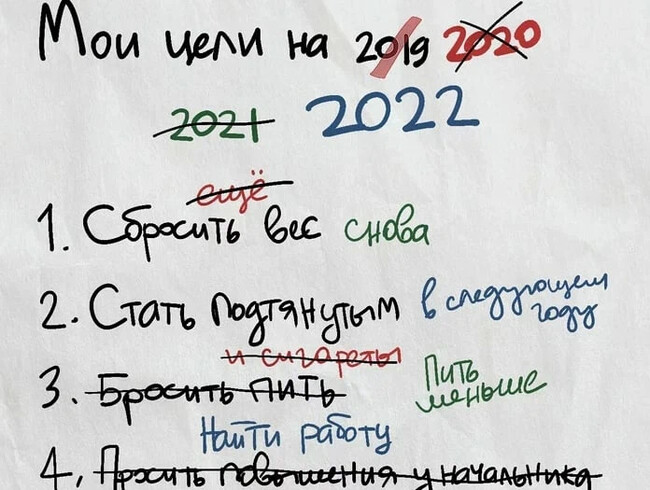 Мои цели на 2019 2020
2021 2022
ещё
1. Сбросить вес снова
2. Стать подтянутым в следующем году
и сигареты
3. Бросить пить Пить меньше
Найти работу
4. Просить повышения у начальника